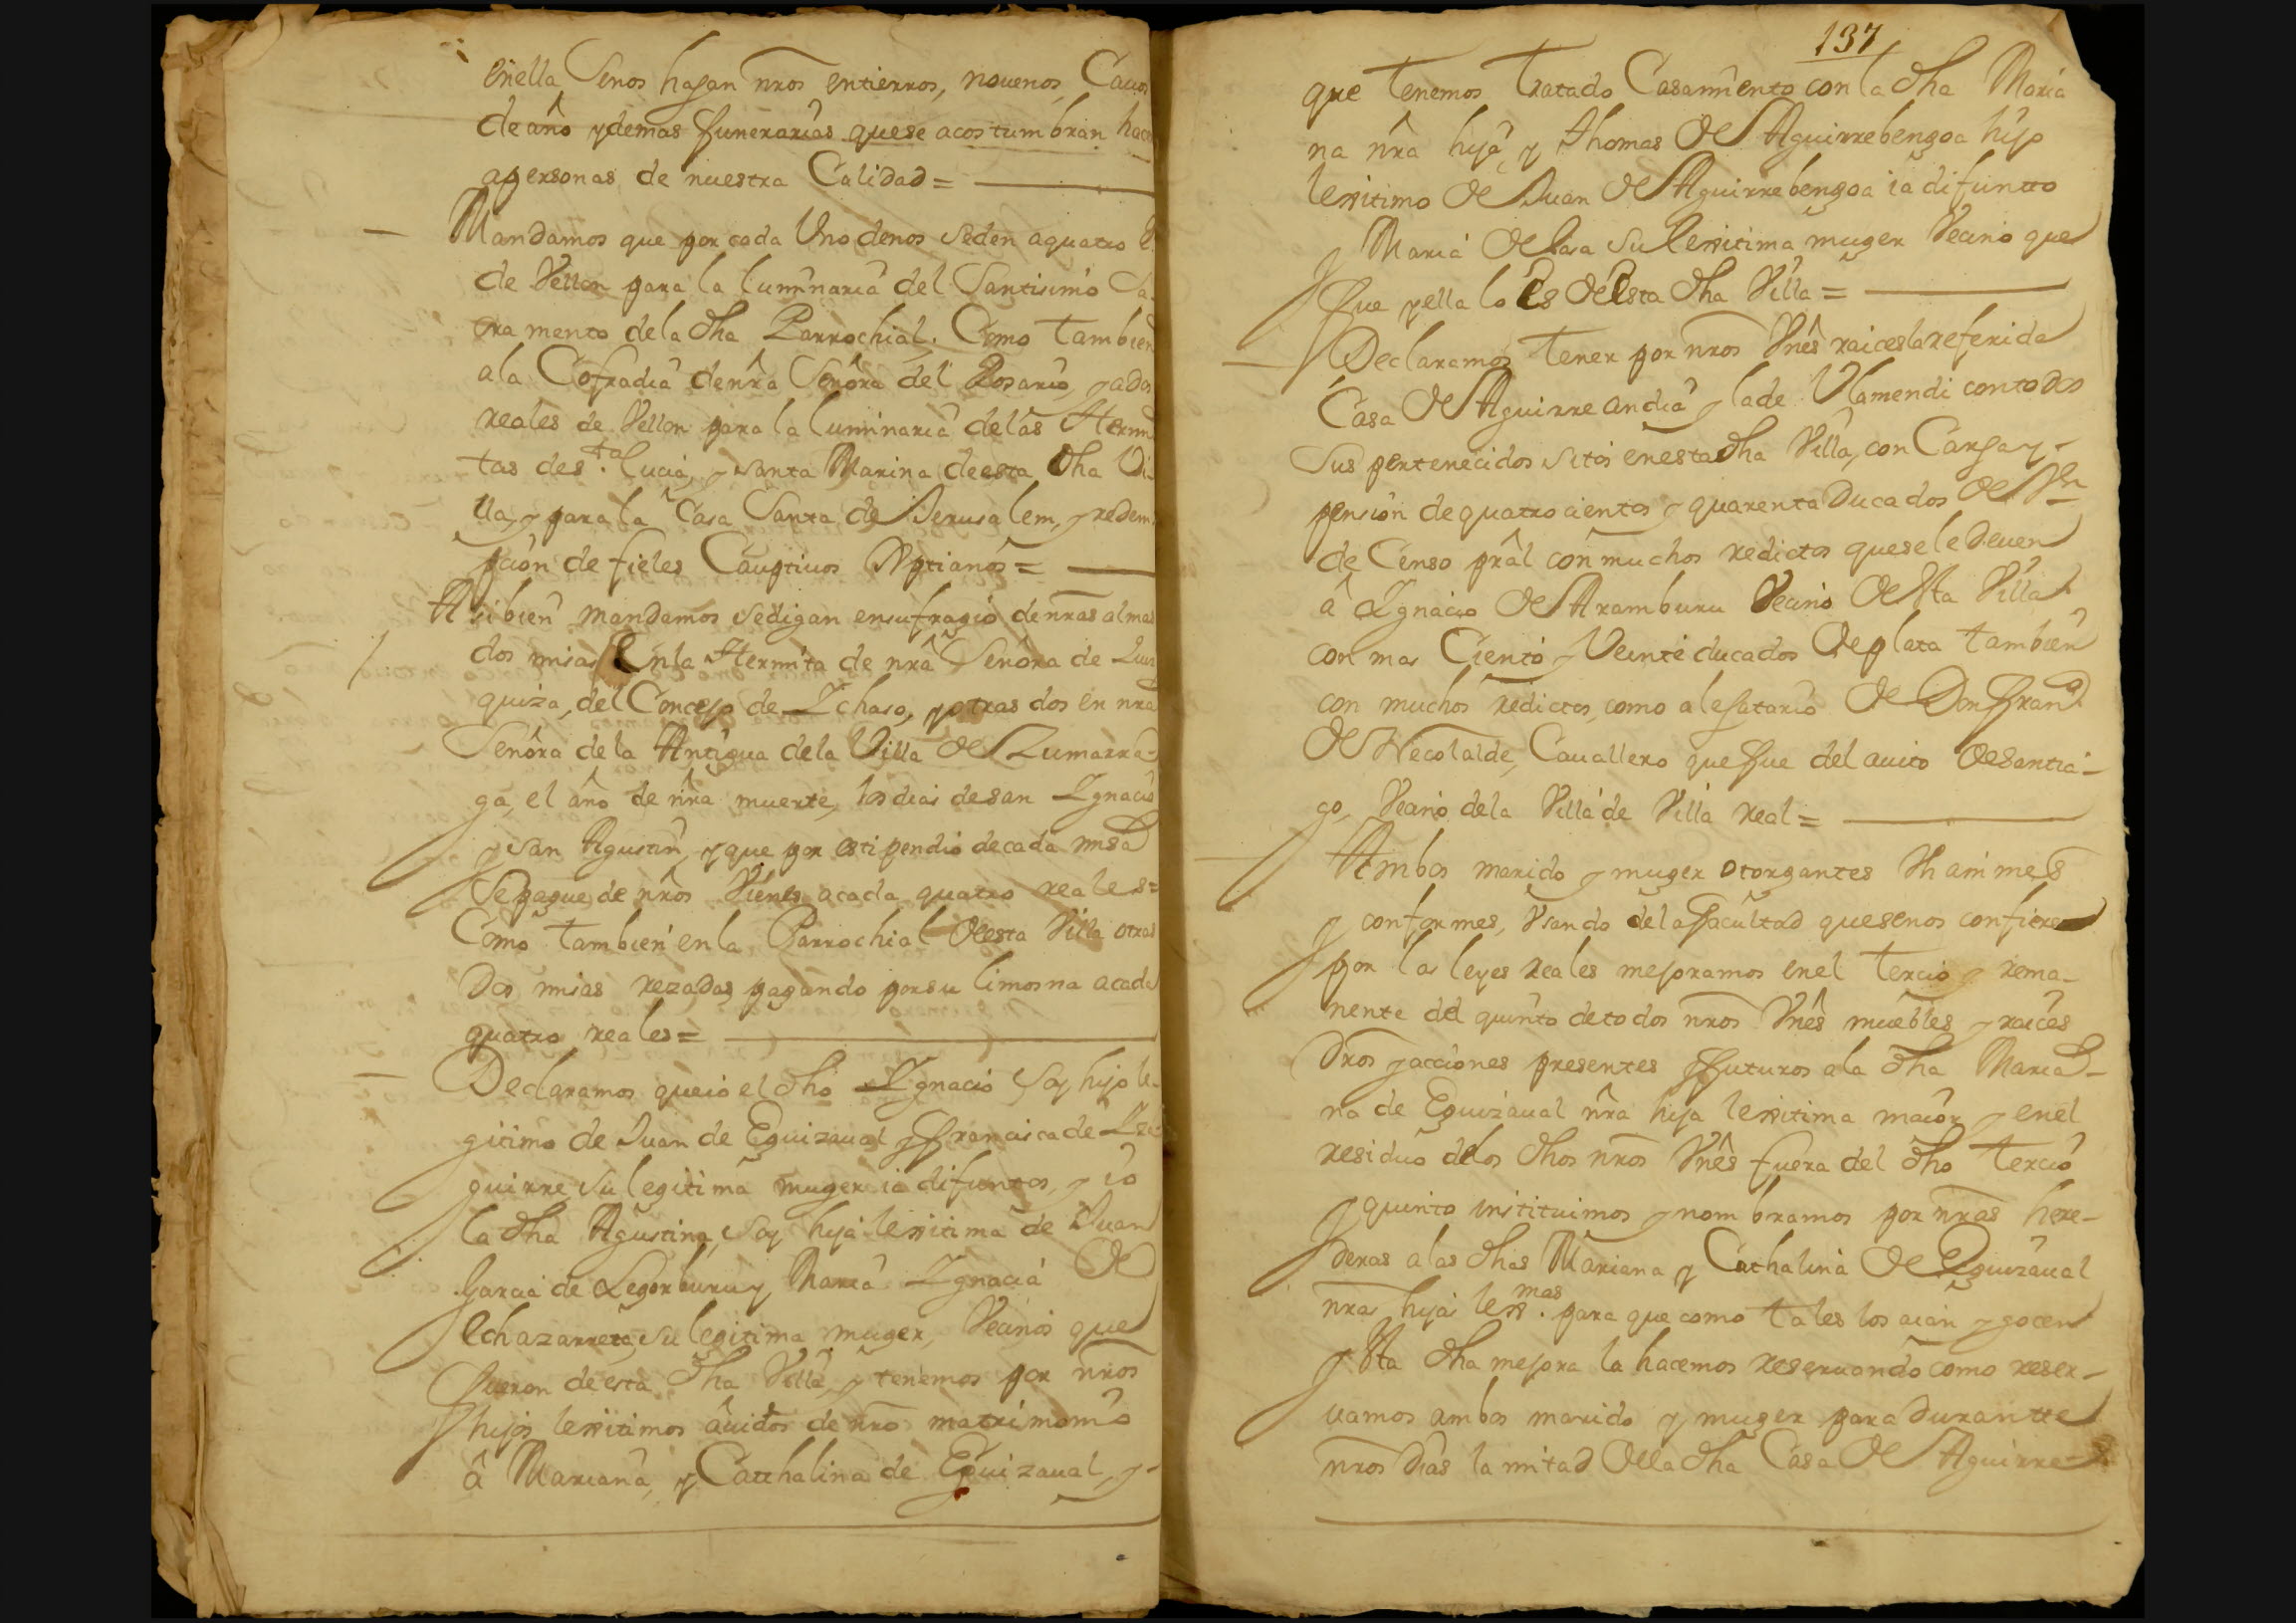 enella Senos hagan nros entierros, novenos, Cauos
de año y demas funerarias quese acostumbran hacer
apersonas de nuestra Calidad =
Mandamos que por cada Uno denos seden aquatro
de Vellon para la luminaria del Santisimo Sa-
cramento dela dha Parrochial. Como tambien
ala Cofradia denra Señora del Rosario, y ados
reales de Vellon para la luminaria delas Hermi
tas des.ta Lucia, y santa Marina deesta dha Vi-
lla, y para la Casa Santa de Jerusalem, y redem
pcion de fieles Cauptiuos Xptianos =
Asibien mandamos sedigan ensufragio denras almas
dos misas Enla Hermita de nra Señora de
quiza, del Concejo de Ichaso, y otras dos en nra
Señora de la Antigua dela Villa de Zumarra-
ga, el año de nra muerte, los dias desan Ignacio
y san Agustin, y que por estipendio decada misa
Sepague de nros Vienes acada quatro reales =
Como tambien enla Parrochial deesta Villa otras
Dos misas rezadas pagando porsu limosna acada
quatro reales =
Declaramos queio el dho Ignacio Soy hijo le-
gitimo de Juan de Eguizaual y francisca de Iza
guirre, su legitima muger ia difuntos, y io
la dha Agustina, soy hija lexitima de Juan
Garcia de Legorburu y Maria Ignacia de
Echazarreta, su legitima muger, Vecinos que
fueron deesta dha Villa, y tenemos por nros
hijos lexitimos auidos de nro matrimonio
â Mariana, y Catthalina de Eguizaual, y-
137
que tenemos tratado Casamiento con la dha Maria
na nra hija, y Thomas de Aguirrebengoa hijo
lexitimo de Juan de Aguirrebengoa ia difuntto
y Maria de lasa su lexitima muger Vecino que
fue y ella lo Es de Esta dha Villa =
Declaramos tener por nros Vnês raices la referida
Casa de Aguirre andia y la de Vlamendi con todos
sus pertenecidos sitos enesta dha Villa, con Carga y-
pension de quatrocientos y quarenta Ducados de Vn
de Censo prâl con muchos redictos quesele deuen
â Ygnacio de Aramburu Vecino de Sta Villa
con mas Ciento y Veinte ducados de plata tambien
con muchos redictos, como alegatario de Don Fran.co
de Necolalde, Cauallero que fue del auito de Santia-
go, Vecino dela Villa de Villa real =
Ambos marido y muger otorgantes Vnanimes
y conformes, Vsando dela facultad quesenos confiere
por las leyes reales mejoramos enel tercio y rema-
nente del quinto detodos nros Vnês muebles y raices
dros y acciones presentes y futuros ala dha Maria-
na de Eguizaual nra hija lexitima maior y enel
residuo delos dhos nros Vnês fuera del dho tercio
y quinto instituimos y nombramos por nras here-
deras alas dhas Mariana y Cathalina de Eguizaual
nras hijas lex.mas para que como tales los aian y gocen
y Sta dha mejora la hacemos reseruando como reser-
uamos ambos marido y muger para durantte
nros dias la mitad de la dha Casa de Aguirre-